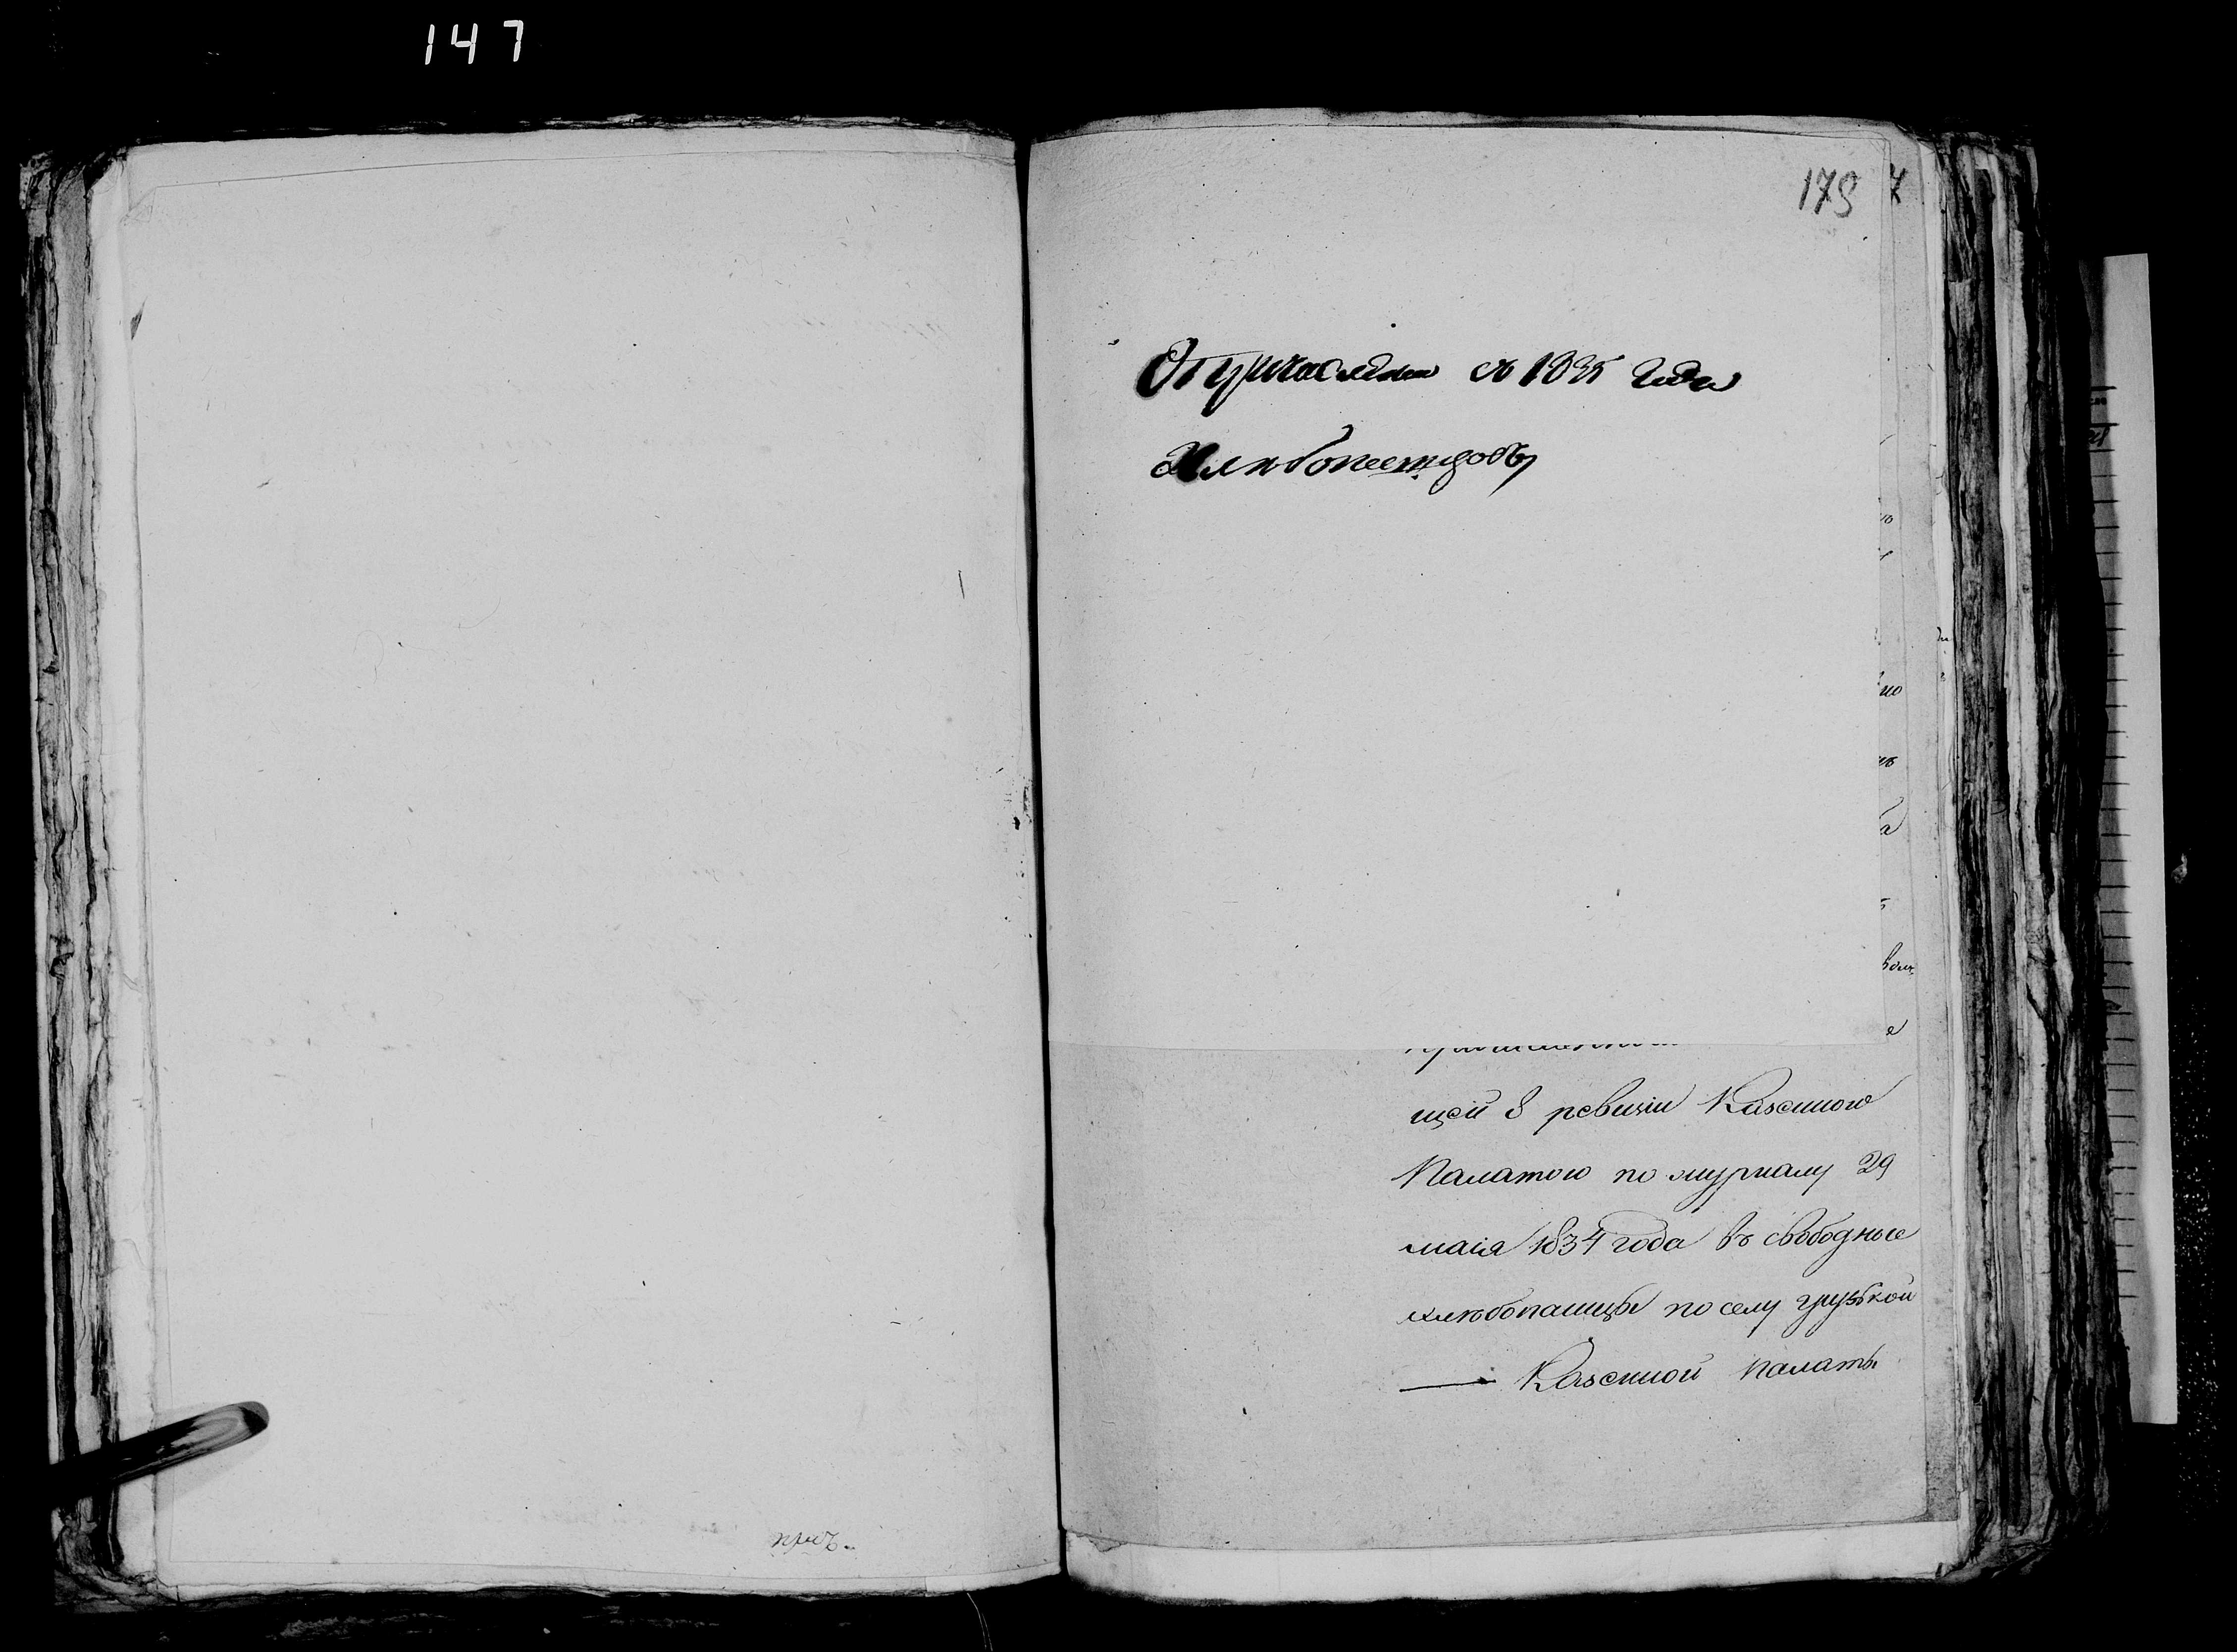 147
179 7
с 1835 года
Хлебопашцовъ
щей 8 ревизіи Казенною
Палатою по журналу 29
маія 1834 года въ свободные
хлебопашцы по селу грузкой
Казенной Палаты